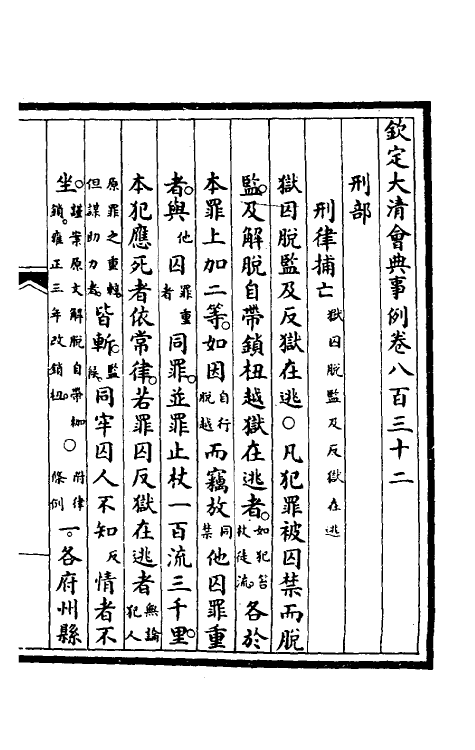 欽定大清會典事例卷八百三十二
刑部
刑律捕亡獄囚脫監及反獄在逃
獄囚脫監及反獄在逃○凡犯罪被囚禁而脫
監。及解脫自帶鎖杻越獄在逃者。如犯笞杖徒流。各於
本罪上加二等。如因自行脫越而竊放同禁他囚罪重
者。與他囚罪重者同罪。並罪止杖一百流三千里。
本犯應死者依常律。若罪囚反獄在逃者無論犯人
原罪之重輕。但謀助力者。皆斬。監候。同牢囚人不知反情者不
坐。謹案原文解脫自帶枷鎖。雍正三年改鎖杻。○附律條例一。各府州縣